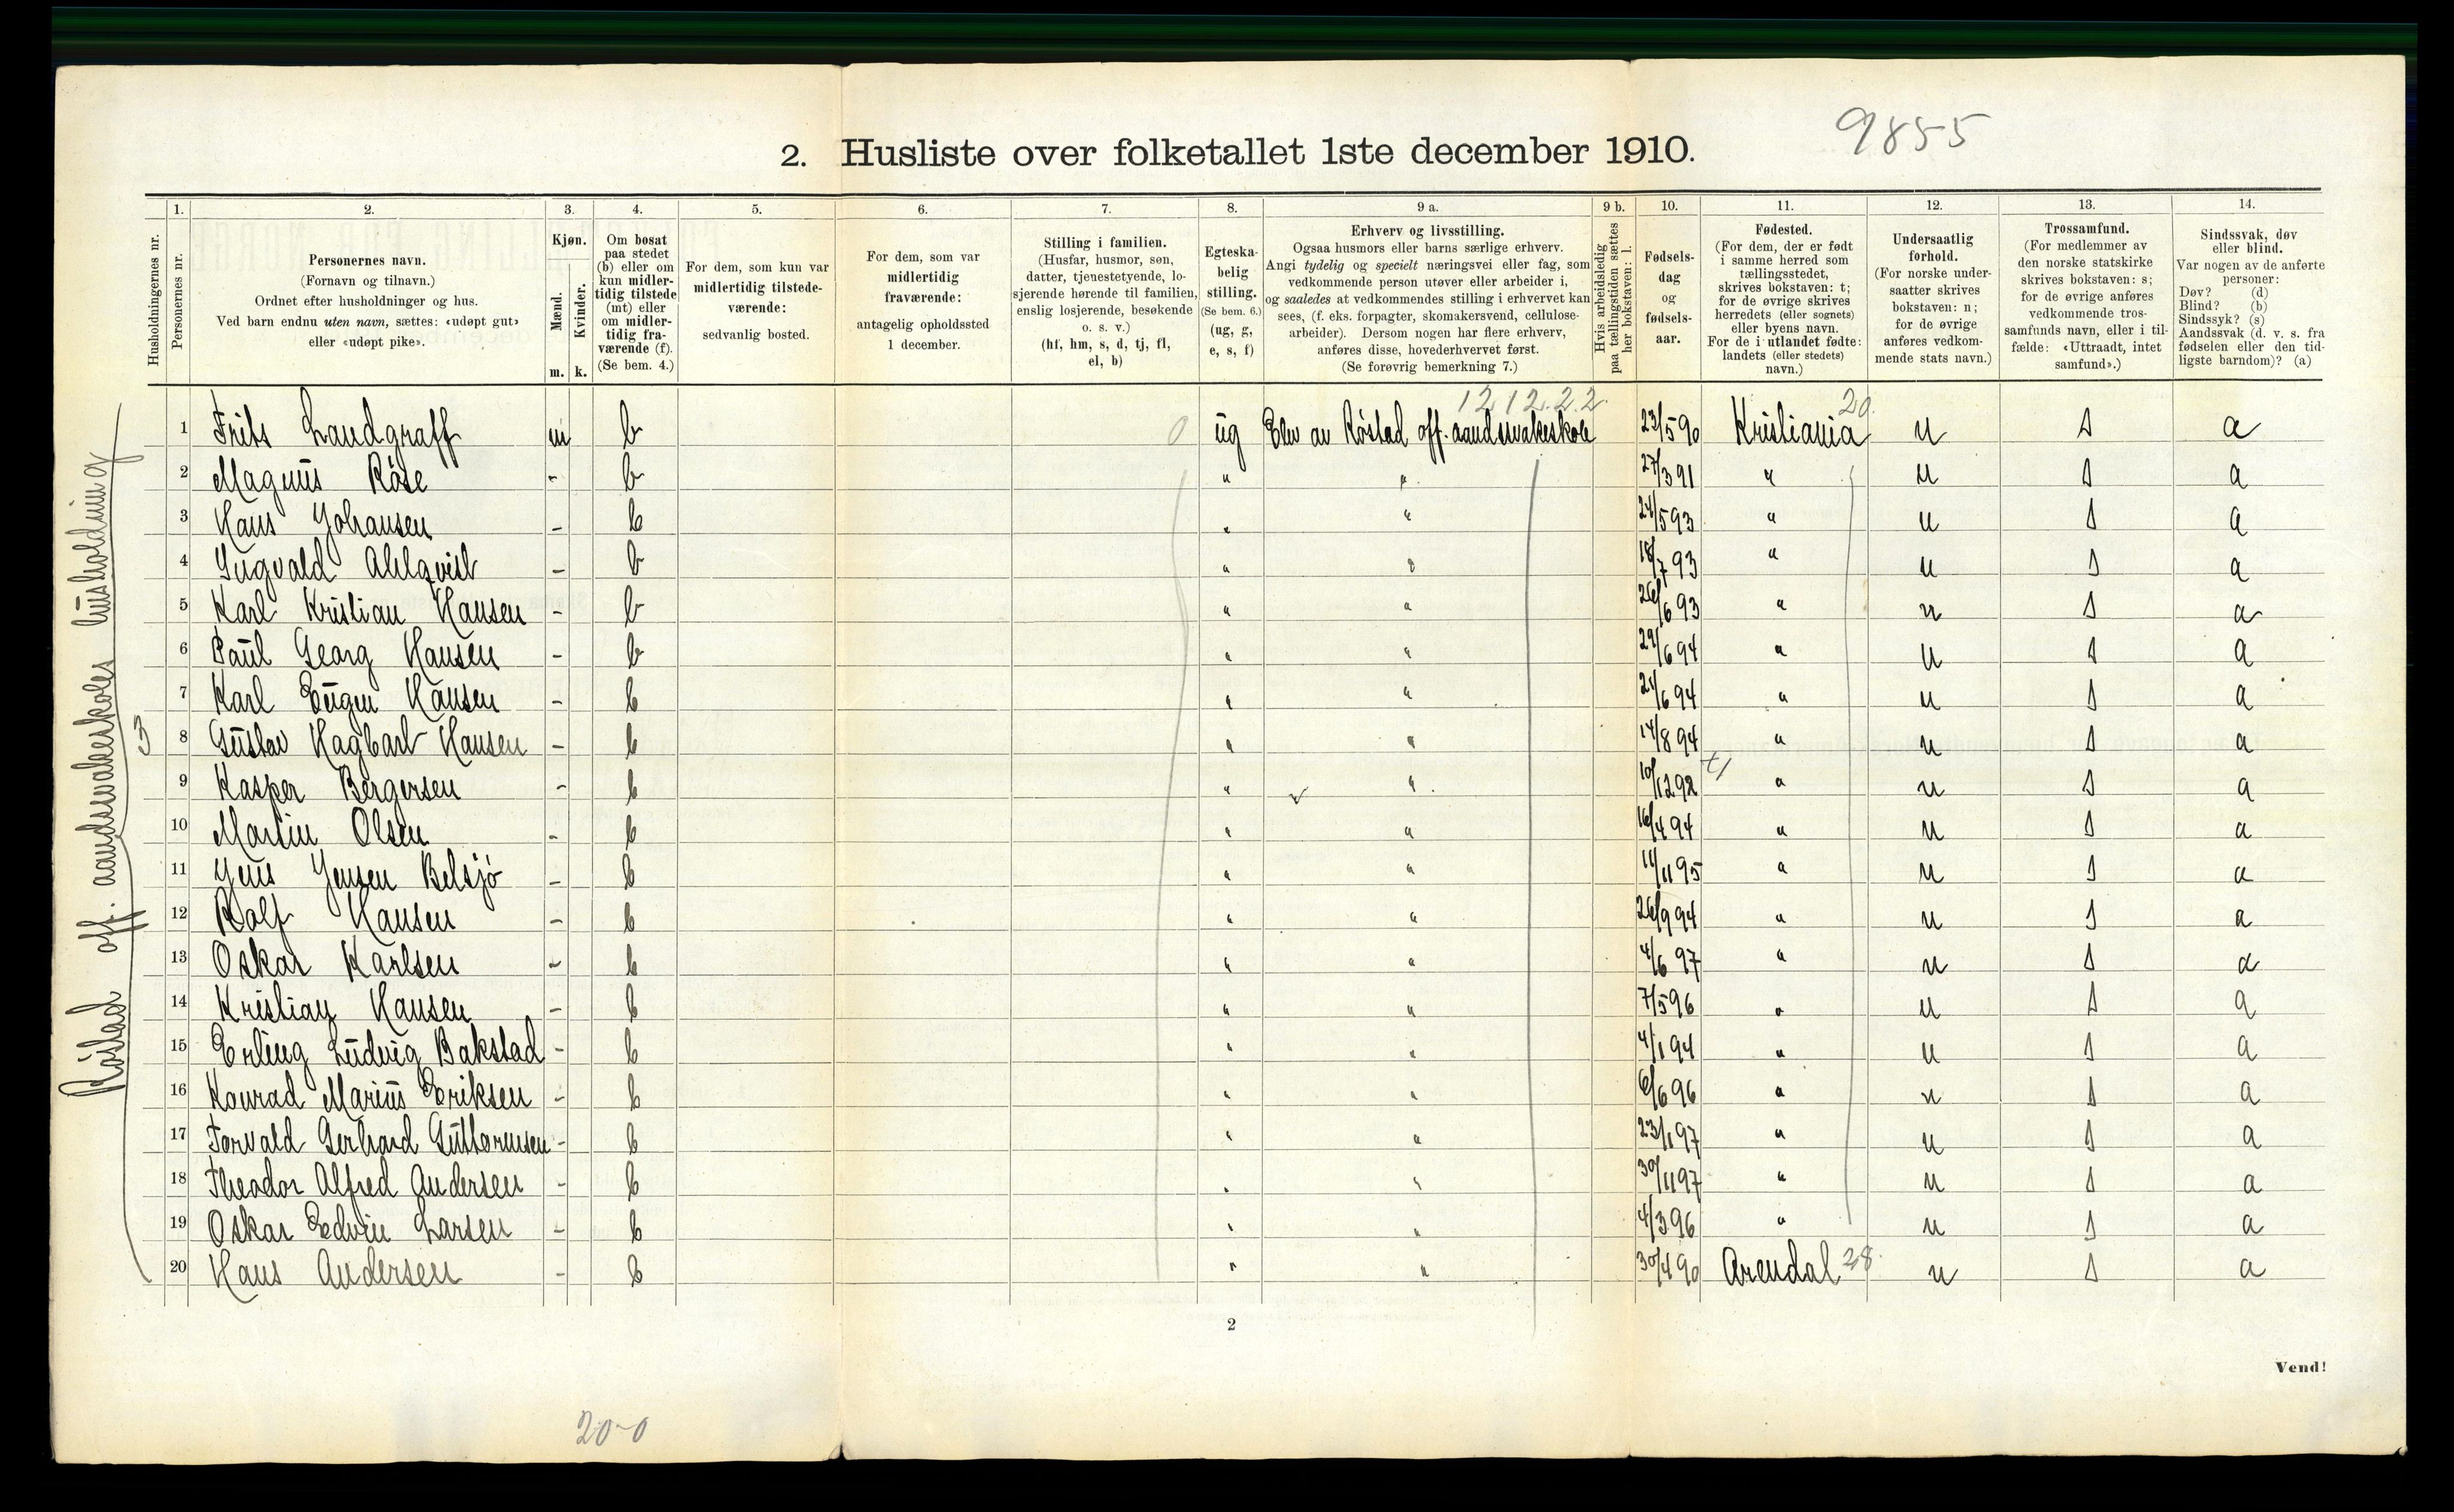 9855
2. Husliste over folketallet 1ste december 1910.
Husholdningernes nr.
1. Personernes nr.
2. Personernes navn.
(Fornavn og tilnavn.)
Ordnet efter husholdninger og hus.
Ved barn endnu uten navn, sættes: «udøpt gut»
eller «udøpt pike».
3. Kjøn.
Mænd. Kvinder.
m. k.
4. Om bosat
paa stedet
(b) eller om
kun midler-
tidig tilstede
(mt) eller
om midler-
tidig fra-
værende (f).
(Se bem. 4.)
5. For dem, som kun var
midlertidig tilstede-
værende:
sedvanlig bosted.
6. For dem, som var
midlertidig
fraværende:
antagelig opholdssted
1 december.
7. Stilling i familien.
(Husfar, husmor, søn,
datter, tjenestetyende, lo-
sjerende hørende til familien,
enslig losjerende, besøkende
o. s. v.)
(hf, hm, s, d, tj, fl,
el, b)
8. Egteska-
belig
stilling.
(Se bem. 6.)
(ug, g,
e, s, f)
9 a. Erhverv og livsstilling.
Ogsaa husmors eller barns særlige erhverv.
Angi tydelig og specielt næringsvei eller fag, som
vedkommende person utøver eller arbeider i,
og saaledes at vedkommendes stilling i erhvervet kan
sees, (f. eks. forpagter, skomakersvend, cellulose-
arbeider). Dersom nogen har flere erhverv,
anføres disse, hovederhvervet først.
(Se forøvrig bemerkning 7.)
9 b. Hvis arbeidsledig
paa tællingstiden sættes
her bokstaven: l.
10. Fødsels-
dag
og
fødsels-
aar.
11. Fødested.
(For dem, der er født
i samme herred som
tællingsstedet,
skrives bokstaven: t;
for de øvrige skrives
herredets (eller sognets)
eller byens navn.
For de i utlandet fødte:
landets (eller stedets)
navn.)
12. Undersaatlig
forhold.
(For norske under-
saatter skrives
bokstaven: n;
for de øvrige
anføres vedkom-
mende stats navn.)
13. Trossamfund.
(For medlemmer av
den norske statskirke
skrives bokstaven: s;
for de øvrige anføres
vedkommende tros-
samfunds navn, eller i til-
fælde: «Uttraadt, intet
samfund».)
14. Sindssvak, døv
eller blind.
Var nogen av de anførte
personer:
Døv? (d)
Blind? (b)
Sindssyk? (s)
Aandssvak (d. v. s. fra
fødselen eller den tid-
ligste barndom)? (a)
Røstad off. aandssvakeskoles husholdning
3
12.12.2.2. 20.
1 Frits Landgraff m b 0 ug Elev av Røstad off. aandssvakeskole 23/5 90 Kristiania n s a
2 Magnus Röse - b " " 27/3 91 " n s a
3 Hans Johansen - b " " 24/5 93 " n s a
4 Ingvald Ahlqvist - b " " 18/7 93 " n s a
5 Karl Kristian Hansen - b " " 26/6 93 " n s a
6 Paul Georg Hansen - b " " 29/6 94 " n s a
7 Karl Eugen Hansen - b " " 21/6 94 " n s a
8 Gustav Hagbart Hansen - b " " 14/8 94 " n s a
9 Kasper Bergersen - b " " 10/12 92 " n s a
10 Martin Olsen - b " " 16/4 94 " n s a
11 Jens Jensen Belsjø - b " " 11/11 95 " n s a
12 Rolf Hansen - b " " 26/9 94 " n s a
13 Oskar Karlsen - b " " 4/6 97 " n s a
14 Kristian Hansen - b " " 7/5 96 " n s a
15 Erling Ludvig Bakstad - b " " 4/1 94 " n s a
16 Konrad Marius Eriksen - b " " 6/6 96 " n s a
17 Torvald Gerhard Guttormsen - b " " 23/1 97 " n s a
18 Theodor Alfred Andersen - b " " 30/11 97 " n s a
19 Oskar Edvin Larsen - b " " 4/3 96 " n s a
20 Hans Andersen - b " " 30/4 90 Arendal 28. n s a
2
Vend!
20-0